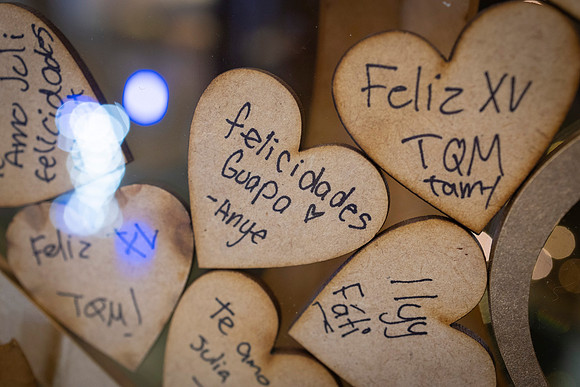 Amo Juli
felicidades
felicidades
Guapa ♥
-Anye
Feliz XV
TQM
tamy
Feliz XV
TQM!
te amo
Julia
Ilyy
Fáti